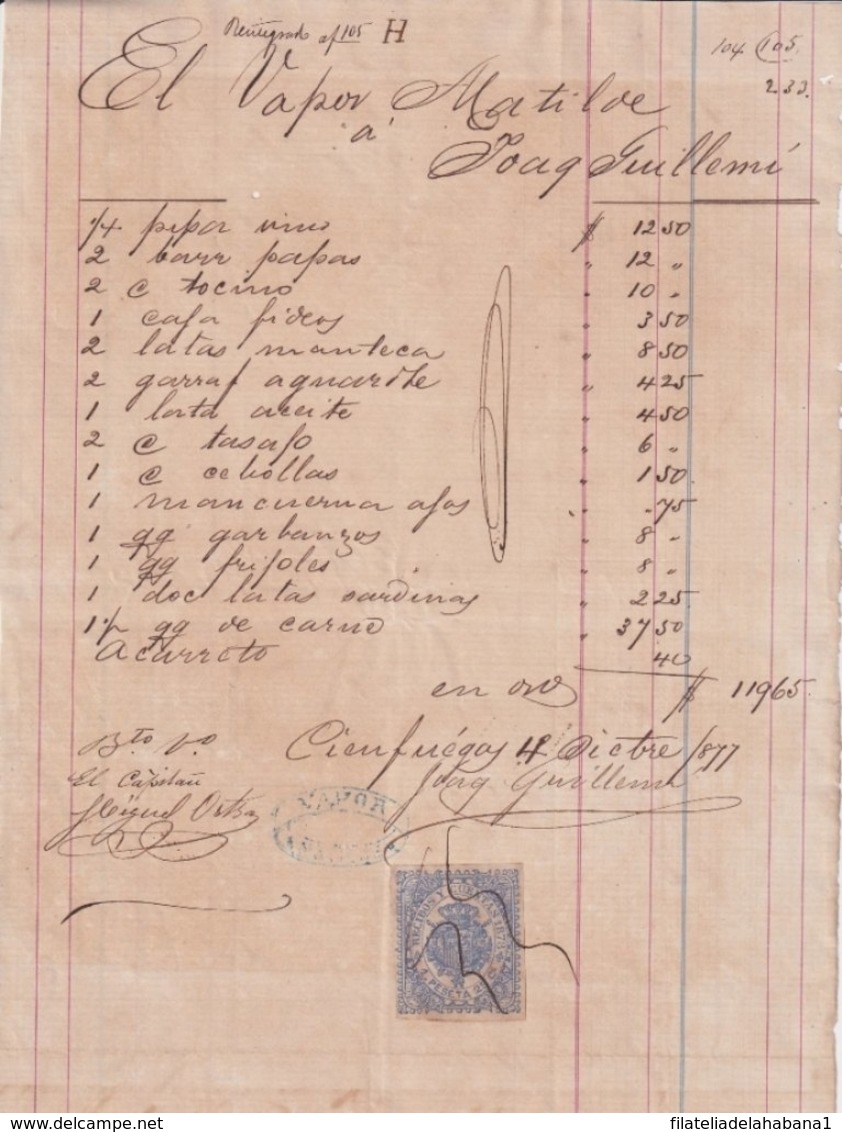 Reintegrado af 105 H
104 105
233.
El Vapor Matilde
a
Joaq Guillemi
1/4 pipa vino $ 12 50
2 barr papas " 12 "
2 @ tocino " 10 "
1 caja fideos " 3 50
2 latas manteca " 8 50
2 garraf aguardte " 4 25
1 lata aceite " 4 50
2 @ tasajo " 6 "
1 @ cebollas " 1 50
1 mancuerna ajos " . 75
1 qq garbanzos " 8 "
1 qq frijoles " 8 "
1 doc latas sardinas " 2 25
1 1/2 qq de carne " 37 50
Acarreto 40
en oro $ 119 65
Cienfuegos 4 Dictre /877
Bto Vo
El Capitan
Miguel Ortiz
Joaq Guillemi
VAPOR
RECIBOS Y CUENTAS 1878
PESETA
filateliadelahabana1